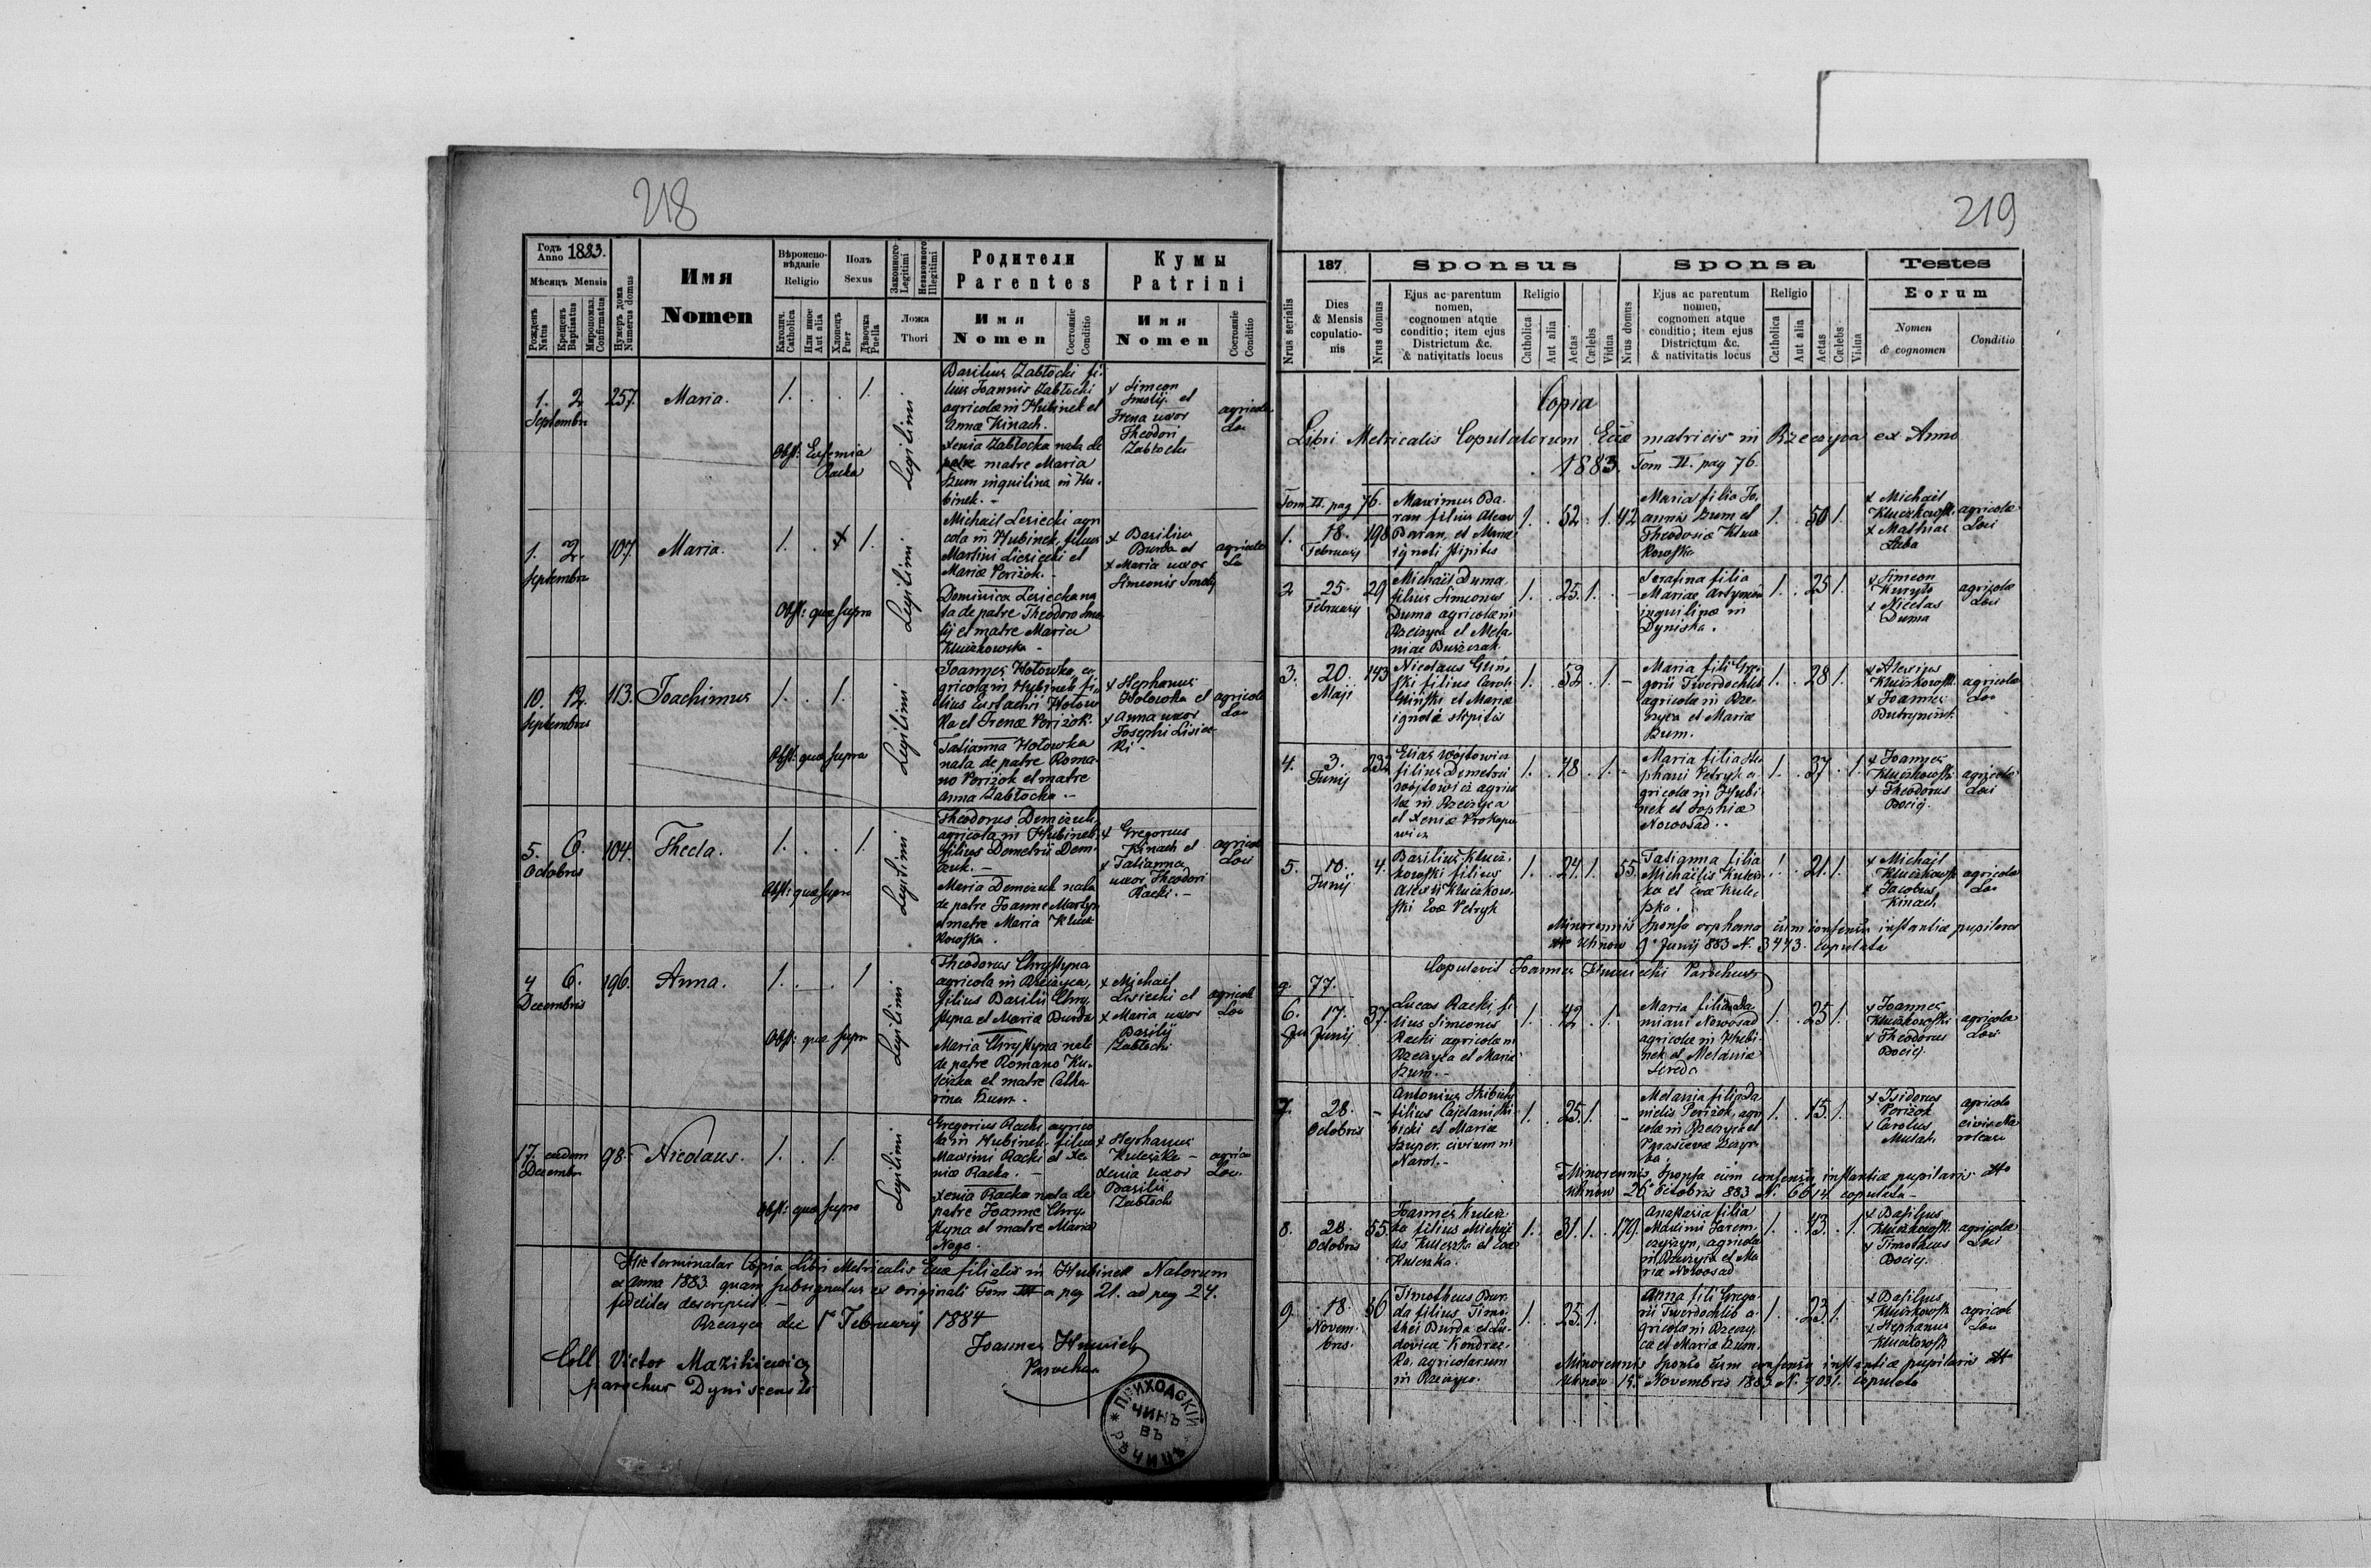 218
Годъ Anno 1883.
Мѣсяцъ Mensis
Рожденъ Natus
Крещенъ Baptisatus
Миропомаз. Confirmatus
Нумеръ дома Numerus domus
Имя
Nomen
Вѣроисповѣданіе
Religio
Католич. Catholica
Или иное Aut alia
Полъ
Sexus
Хлопецъ Puer
Дѣвочка Puella
Законного Legitimi
Незаконного Illegitimi
Ложа
Thori
Родители
Parentes
Имя
Nomen
Состояніе Conditio
Кумы
Patrini
Имя
Nomen
Состояніе Conditio
1. 2. Septembris
257.
Maria.
1. . . 1.
Obst: Eufemia
Racka
Legitimi
Basilius Zabłocki fi-
lius Joannis Zabłocki
agricolæ in Hubinek et
Annæ Kinach.
Xenia Zabłocka nata de
matre Maria
Szum inquilina in Hu-
binek. -
+ Simeon
Smolij et
Irena uxor
Theodori
Zabłocki
agricolæ
Loci
1. 2. Septembris
107.
Maria.
1. . + 1.
Obst: quæ supra
Legitimi
Michail Lesiecki agri
cola in Hubinek, filius
Martini Lisiecki et
Mariæ Periżok. -
Dominica Lesiecka na
ta de patre Theodoro Smo
lij et matre Maria
Kluczkowska -
+ Basilius
Burda et
+ Maria uxor
Simeonis Smolij
agricolæ
Loci
10. 12. Septembris
113.
Joachimus
1. . 1.
Obst: quæ supra
Legitimi
Joannes Hołowka, a-
gricola in Hubinek fi-
lius Eustachii Hołow
ka et Irenæ Periżok.
Tatianna Hołowka
nata de patre Roma-
no Periżok et matre
Anna Zabłocka. -
+ Stephanus
Hołowka et
+ Anna uxor
Josephi Lisiec-
ki -
agricolæ
Loci
5. 6. Octobris
104.
Thecla.
1. . . 1.
Obst: quæ supra
Legitimi
Theodorus Demczuk,
agricola in Hubinek,
filius Demetrii Dem-
czuk. -
Maria Demczuk nata
de patre Joanne Martyn
et matre Maria Klucz
kowska.
+ Gregorius
Kinach et
+ Tatianna
uxor Theodori
Racki. -
agricolæ
Loci
4 6. Decembris
196.
Anna.
1. . . 1
Obst: quæ supra
Legitimi
Theodorus Chrystyna
agricola in Rzeczyca,
filius Basilii Chry-
styna et Mariæ Burda
Maria Chrystyna nata
de patre Romano Ku-
leszka et matre Catha-
rina Szum.
+ Michael
Lisiecki et
+ Maria uxor
Basilij
Zabłocki
agricolæ
Loci
17. eadem Decembr
98.
Nicolaus.
1. . 1.
Obst: quæ supra
Legitimi
Gregorius Racki agrico
la in Hubinek filius
Maximi Racki et Xe-
niæ Racka. -
Xenia Racka nata de
patre Joanne Chry-
styna et matre Maria
Noga.
+ Stephanus
Kuleszka -
Xenia uxor
Basilii
Zabłocki
agricolæ
Loci
Hic terminatur Copia Libri Metricalis Eccæ filialis in Hubinek Natorum
ex Anno 1883 quam subsignatus ex originali Tom III a pag 21. ad pag 24.
fideliter descripsit. -
Rzeczyca die 1 Februarij 1884
Joannes
Parochus
Coll. Victor Mazikiewicz
parochus Dyniscensis
ПРИХОДСКІЙ ЧИНЪ ВЪ РѢЧИЦѢ
219
Nrus serialis
187
Dies
& Mensis
copulatio-
nis
Nrus domus
Sponsus
Ejus ac parentum
nomen,
cognomen atque
conditio; item ejus
Districtum &c.
& nativitatis locus
Religio
Catholica
Aut alia
Aetas
Cælebs
Vidua
Nrus domus
Sponsa
Ejus ac parentum
nomen,
cognomen atque
conditio; item ejus
Districtum &c.
& nativitatis locus
Religio
Catholica
Aut alia
Aetas
Cælebs
Vidua
Testes
Eorum
Nomen
& cognomen
Conditio
Copia
Libri Metricalis Copulatorum Eccæ matricis in Rzeczyca ex Anno
1883. Tom II. pag 76.
Tom II. pag 76.
1. 18. Februarij
198
Maximus Ba-
ran filius Alexii
Baran, et Mariæ
ignoti stipitis
1. . 52 . 1.
42
Maria filia Jo-
annis Szum et
Theodosiæ Klucz
kowska
1. . 50 1
+ Michail
Kluczkowski
+ Mathias
Łuba
agricolæ
Loci
2 25. Februarij
29
Michail Duma,
filius Simeonis
Duma agricolæ in
Rzeczyca et Mela-
niæ Buszczak.
1. . 25. 1. -
Serafina filia
Mariæ Artymowicz
inquilinæ in
Dyniska.
1. . 25 1.
+ Simeon
Kuryło
+ Nicolas
Duma
agricolæ
Loci
3. 20. Maji
143
Nicolaus Gliń-
ski filius Caroli
Gliński et Mariæ
ignotæ stirpitis
1. . 52. . 1. -
Maria fili Gre-
gorii Twerdochleb
agricolæ in Rze-
czyca et Mariæ
Szum.
1. . 28 1.
+ Alexius
Kluczkowski
+ Joannes
agricolæ
Loci
4. 3. Junij
232
Elias Wojtowicz
filius Demetrii
Wojtowicz agrico
læ in Rzeczyca
et Xeniæ Prokopo
wicz
1. . 48 . 1. -
Maria filia Ste
phani Petryk a-
gricolæ in Hubi-
nek et Sophiæ
Nowosad. .
1. . 37 . 1.
+ Joannes
Kluczkowski
+ Theodorus
Bocij.
agricolæ
Loci
5. 10. Junij
4.
Basilius Klucz-
kowski filius
Alexii Kluczkow-
ski Evæ Petryk
1. . 24. 1.
55.
Tatianna filia
Michaëlis Kulesz-
ka et Evæ Kule-
szka.
1. . 21. 1.
+ Michail
Kluczkowski
+ Jacobus
Kinach
agricolæ
Loci
Minorennis sponsa orphana cum consensu instantiæ pupilaris
dto Uhnow 9 Junij 883 N. 3443. copulata
Copulavit Joannes Parochus
pg 77.
6. 17. Junij
37.
Lucas Racki, fi-
lius Simeonis
Racki agricolæ in
Rzeczyca et Mariæ
Szum. -
1. . 42 . 1.
Maria filia Da
miani Nowosad
agricolæ in Hubi-
nek et Melaniæ
Sereda
1. . 25 1.
+ Joannes
Kluczkowski
+ Theodorus
Bocij.
agricolæ
Loci
7. 28. Octobris
-
Antonius Skibicki
filius Cajetani Ski-
bicki et Mariæ
Szuper. civium in
Narol. -
1. . 25 1. -
Melania filia Da
nielis Periżok, agri
colæ in Rzeczyca et
1. . 15. 1.
+ Isidorus
Periżok
+ Carolus
agricola
civis Na
rolensis
Minorennis sponsa cum consensu instantiæ pupilaris dto
Uhnow 26 Octobris 883 N. 6614 copulata -
8. 28. Octobris
55.
Joannes Kulesz-
ka filius Michaë
lis Kuleszka et Evæ
Kuleszka.
1. . 31. 1.
179.
Anastasia filia
Maximi Jarem-
czyszyn, agricolæ
in Rzeczyca et Ma
riæ Nowosad
1. . 43. . 1.
+ Basilius
Kluczkowski.
+ Timotheus
Bocij.
agricolæ
Loci
9 18. Novem-
bris.
36
Timotheus Bur-
da filius Timo-
thei Burda et Lu-
doviæ Kondrac-
ka, agricolarum
in Rzeczyca.
1. . 25 1.
Anna fili Grego-
rii Twerdochlib a-
gricolæ in Rzeczy-
ca et Mariæ Szum.
1. . 23. 1.
+ Basilius
Kluczkowski
+ Stephanus
Kluczkowski
agricolæ
Loci
Minorennis sponsa cum consensu instantiæ pupilaris dto
Uhnow 15. Novembris 1883 N. 7031. copulata